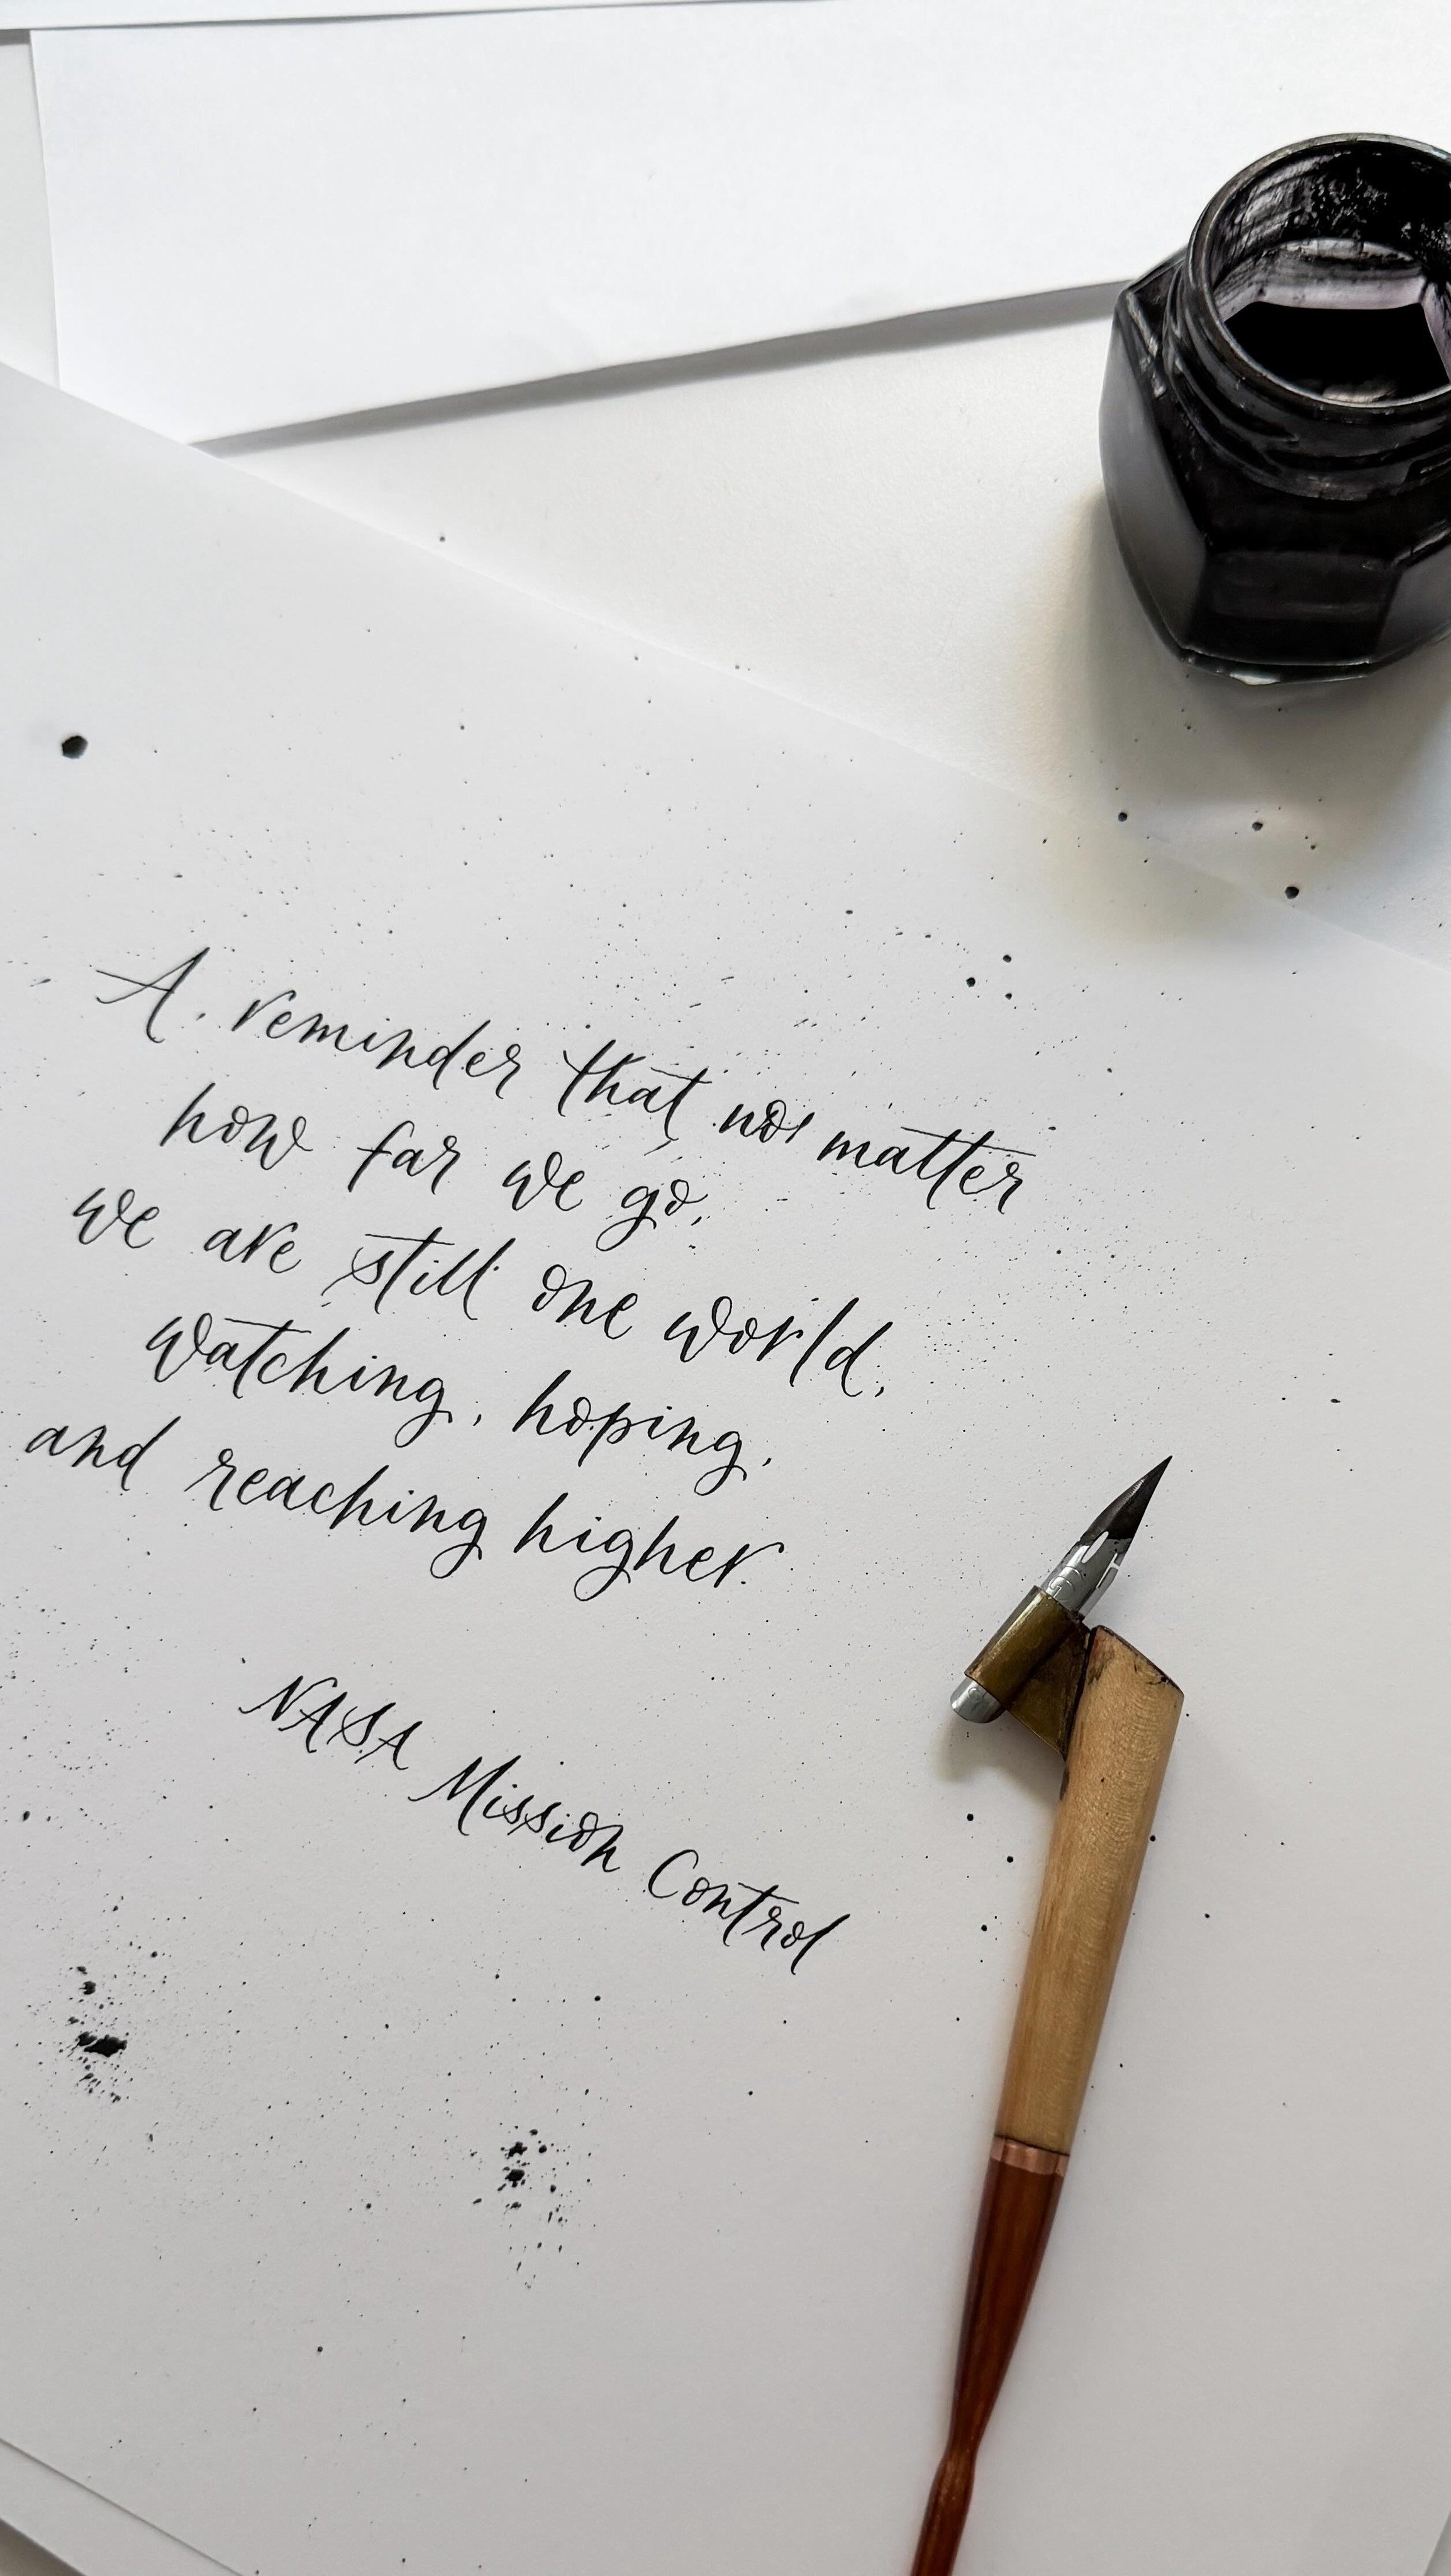 A reminder that no matter
how far we go,
we are still one world,
watching, hoping,
and reaching higher.
NASA Mission Control